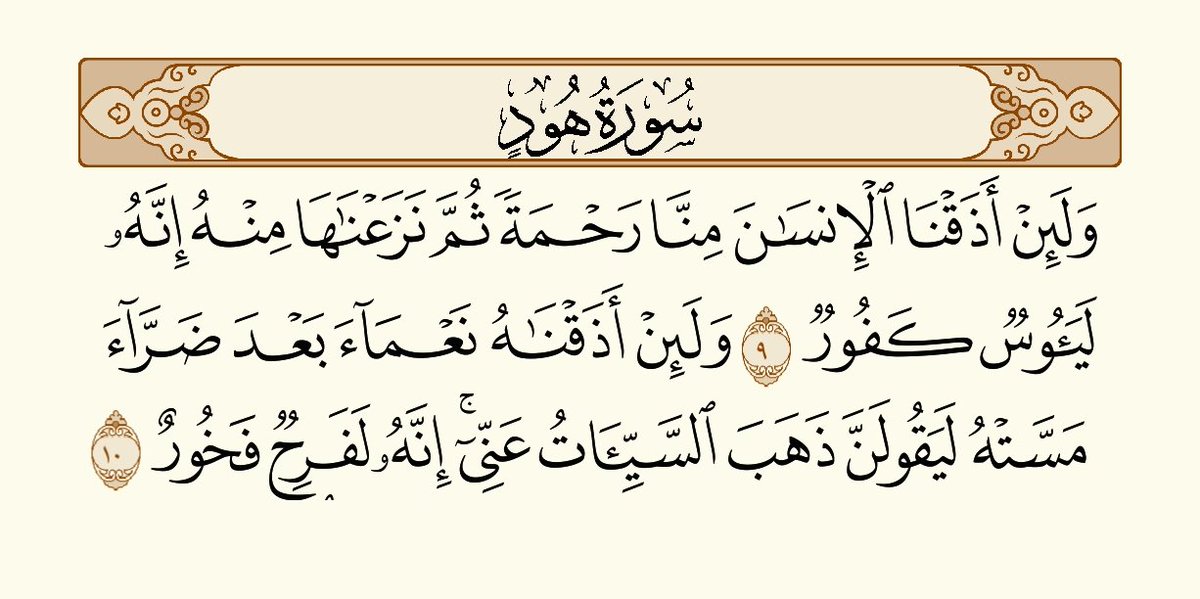 سُورَةُ هُودٍ
وَلَئِنۡ أَذَقۡنَا ٱلۡإِنسَٰنَ مِنَّا رَحۡمَةٗ ثُمَّ نَزَعۡنَٰهَا مِنۡهُ إِنَّهُۥ
لَيَـُٔوسٞ كَفُورٞ ٩ وَلَئِنۡ أَذَقۡنَٰهُ نَعۡمَآءَ بَعۡدَ ضَرَّآءَ
مَسَّتۡهُ لَيَقُولَنَّ ذَهَبَ ٱلسَّيِّـَٔاتُ عَنِّيٓۚ إِنَّهُۥ لَفَرِحٞ فَخُورٌ ١٠